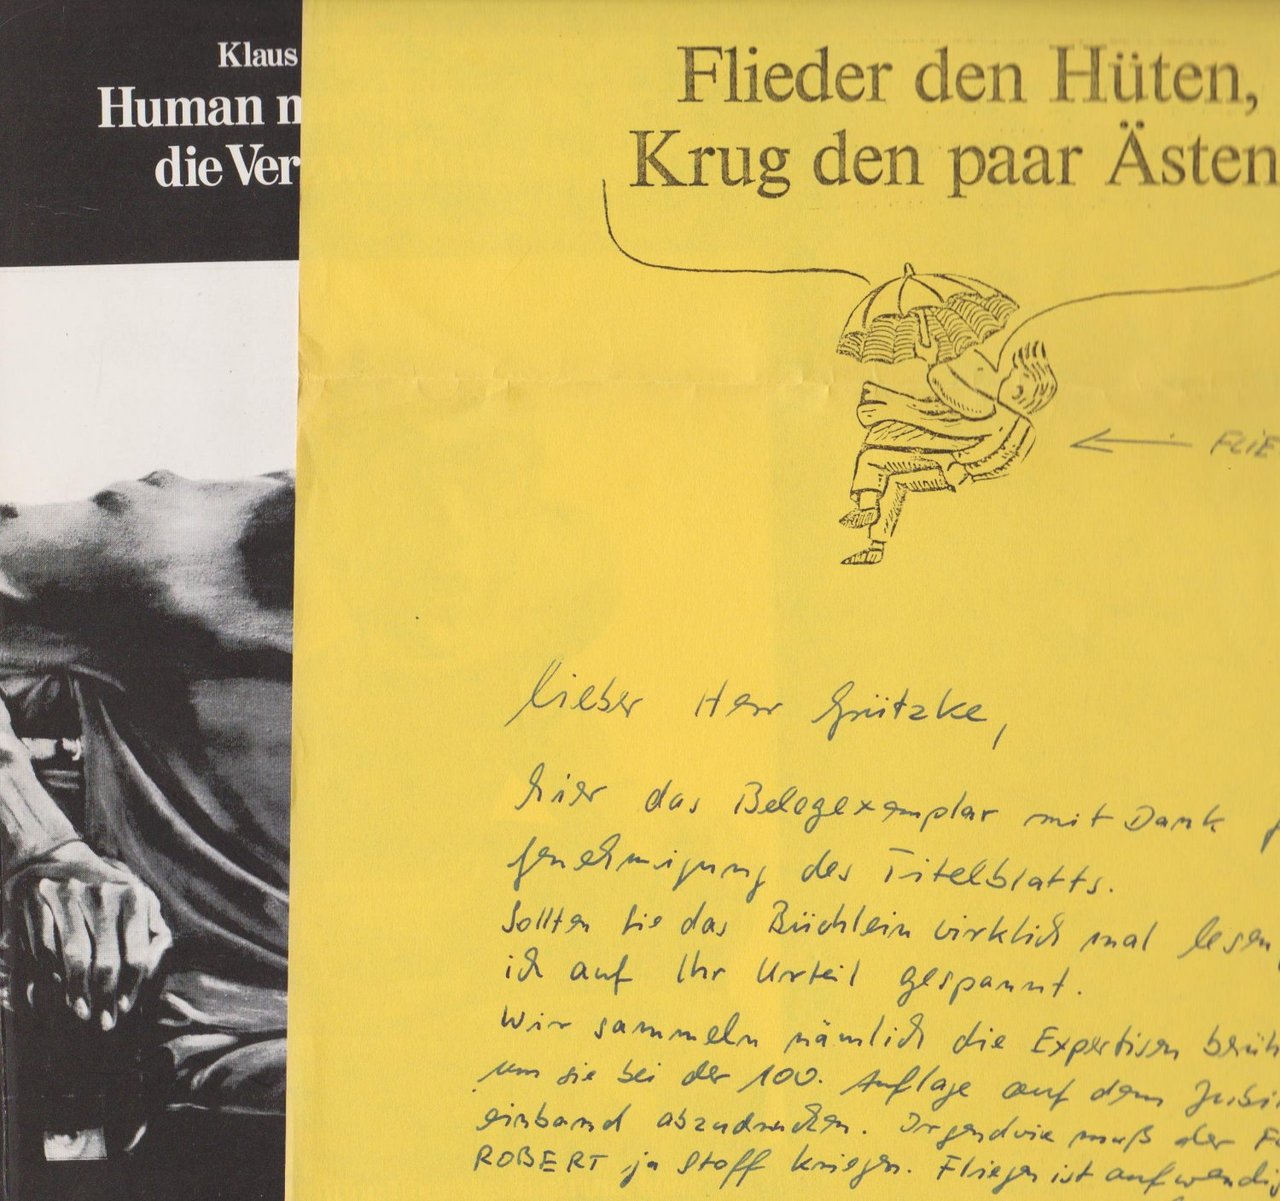 Klaus
Human m
die Ver
Flieder den Hüten,
Krug den paar Ästen
FLIE
Lieber Herr Grützke,
hier das Belegexemplar mit Dank f
Genehmigung des Titelblatts.
Sollten Sie das Büchlein wirklich mal lesen,
ich auf Ihr Urteil gespannt.
Wir sammeln nämlich die Expertisen berüh
um sie bei der 100. Auflage auf dem Jubi
einband abzudrucken. Irgendwie muß der F
ROBERT ja Stoff kriegen. Fliegen ist aufwendig